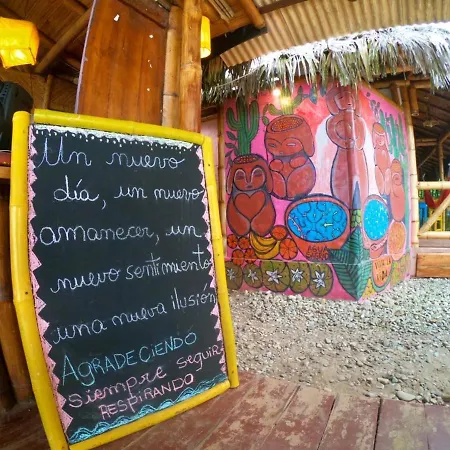 Un nuevo
día, un nuevo
amanecer, un
nuevo sentimiento
una nueva ilusión
AGRADECIENDO
Siempre seguir
RESPIRANDO